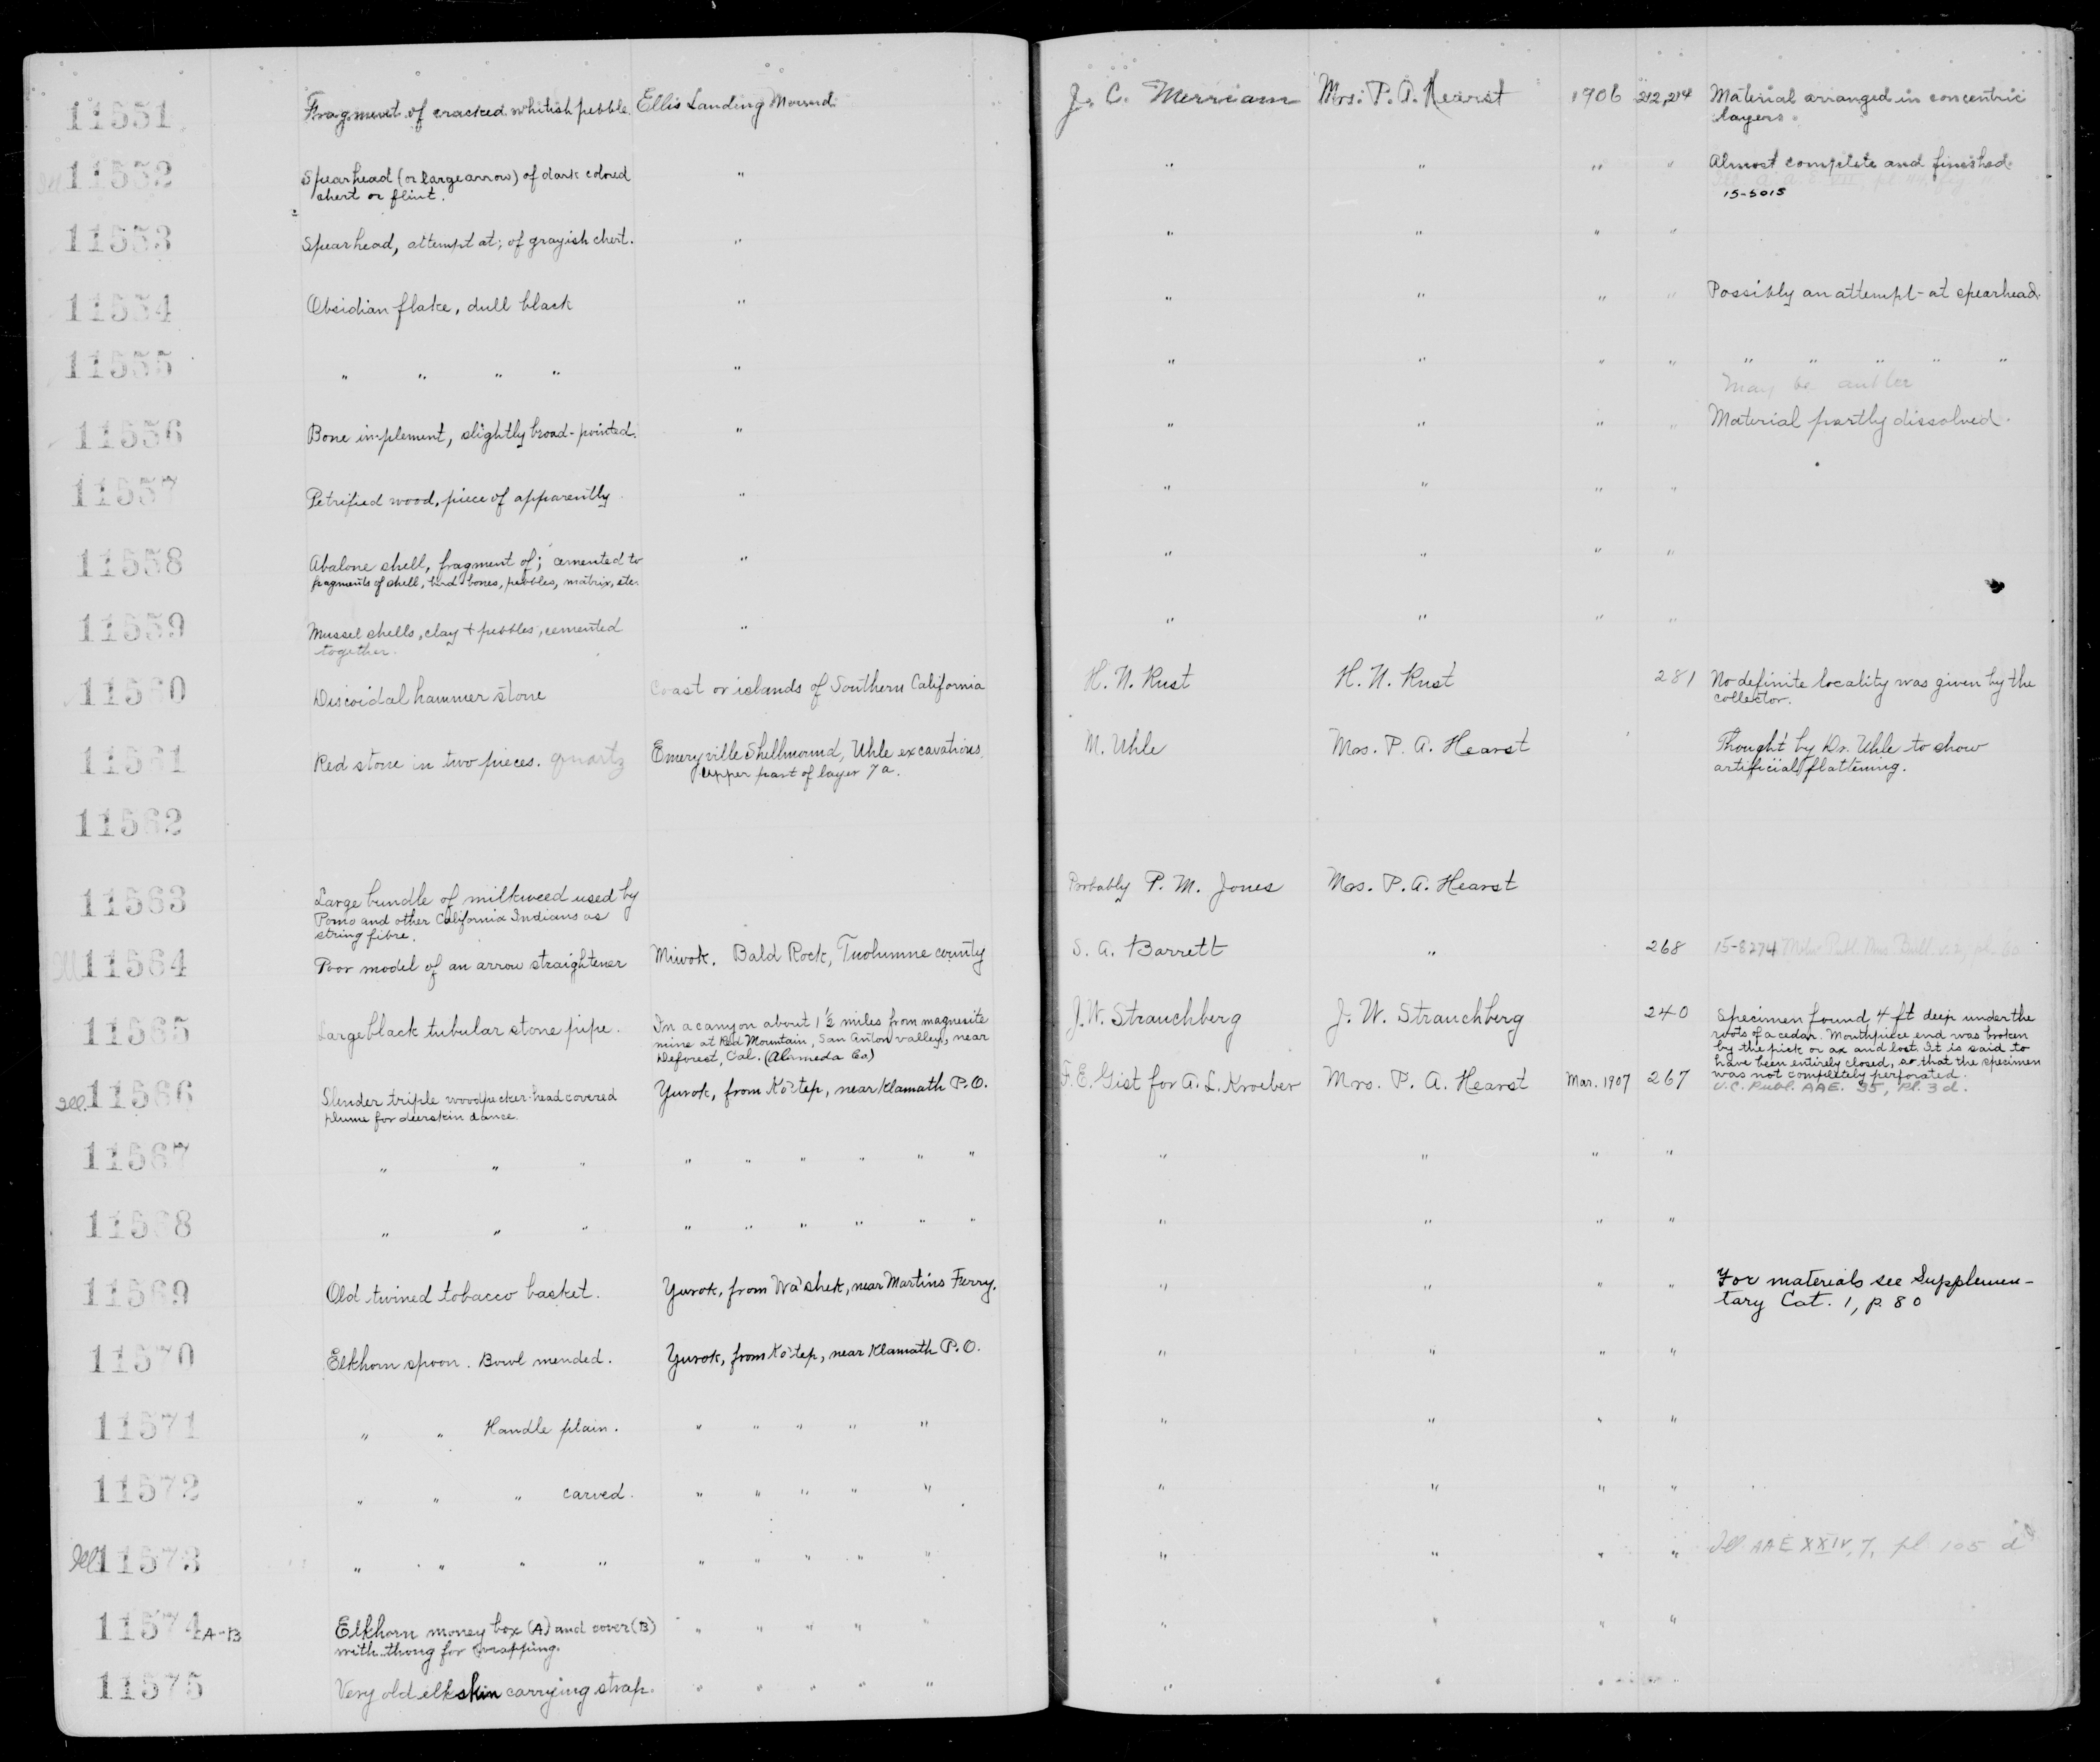 11551 Fragment of cracked whitish pebble. Ellis Landing Mound. J. C. Merriam Mrs. P. A. Hearst 1906 212,214 Material arranged in concentric
layers.
11552 Spearhead (or large arrow) of dark colored " " " " " Almost complete and finished.
chert or flint. 15-5015
11553 Spearhead, attempt at; of grayish chert. " " " " "
11554 Obsidian flake, dull black " " " " " Possibly an attempt at spearhead.
11555 " " " " " " " " " " " " " "
may be antler
11556 Bone implement, slightly broad-pointed. " " " " " Material partly dissolved.
11557 Petrified wood, piece of apparently. " " " " "
11558 Abalone shell, fragment of; cemented to " " " " "
fragments of shell, bird-bones, pebbles, matrix, etc.
11559 Mussel shells, clay + pebbles, cemented " " " " "
together.
11560 Discoidal hammer stone Coast or islands of Southern California H. N. Rust H. N. Rust 281 No definite locality was given by the
collector.
11561 Red stone in two pieces. quartz Emeryville Shellmound, Uhle excavations. M. Uhle Mrs. P. A. Hearst Thought by Dr. Uhle to show
upper part of layer 7a. artificial flattening.
11562
11563 Large bundle of milkweed used by Probably P. M. Jones Mrs. P. A. Hearst
Pomo and other California Indians as
string fibre.
Ill 11564 Poor model of an arrow straightener Miwok. Bald Rock, Tuolumne county S. A. Barrett " 268 15-8274 Milw. Publ. Mus. Bull.
11565 Large black tubular stone pipe. In a canyon about 1½ miles from magnesite J. W. Strauchberg J. W. Strauchberg 240 Specimen found 4 ft deep under the
mine at Red Mountain, San Anton valley, near roots of a cedar. Mouthpiece end was broken
Deforest, Cal. (Alameda Co) by the pick or ax and lost. It is said to
have been entirely closed, so that the specimen
was not completely perforated.
Ill. 11566 Slender triple woodpecker-head covered Yurok, from Ko'tep, near Klamath P.O. F. E. Gist for A. L. Kroeber Mrs. P. A. Hearst Mar. 1907 267 U.C. Publ. AAE. 35, Pl. 3 d.
plume for deerskin dance.
11567 " " " " " " " " " " " " "
11568 " " " " " " " " " " " " "
11569 Old twined tobacco basket. Yurok, from Wa'shek, near Martins Ferry. " " " " For materials see Supplemen-
tary Cat. 1, p. 80
11570 Elkhorn spoon. Bowl mended. Yurok, from Ko'tep, near Klamath P.O. " " " "
11571 " " Handle plain. " " " " " " " " "
11572 " " " carved. " " " " " " " " "
Ill 11573 " " " " " " " " " " " " " Ill AAE XXIV, 7, pl. 105 d
11574 A-B Elkhorn money box (A) and cover (B) " " " " " " " " "
with thong for wrapping.
11575 Very old elkskin carrying strap. " " " " " " " " "